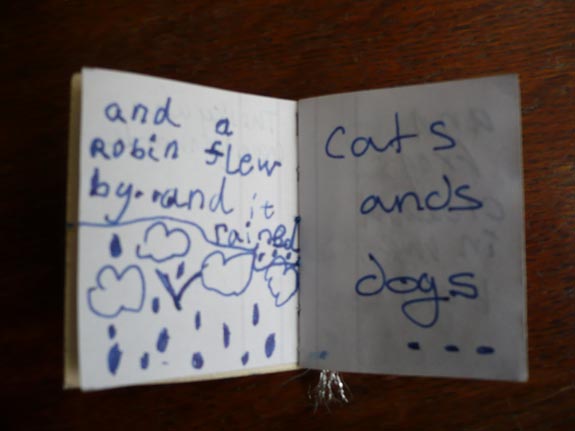 and a
Robin flew
by.. and it
rained
cats
ands
dogs
...